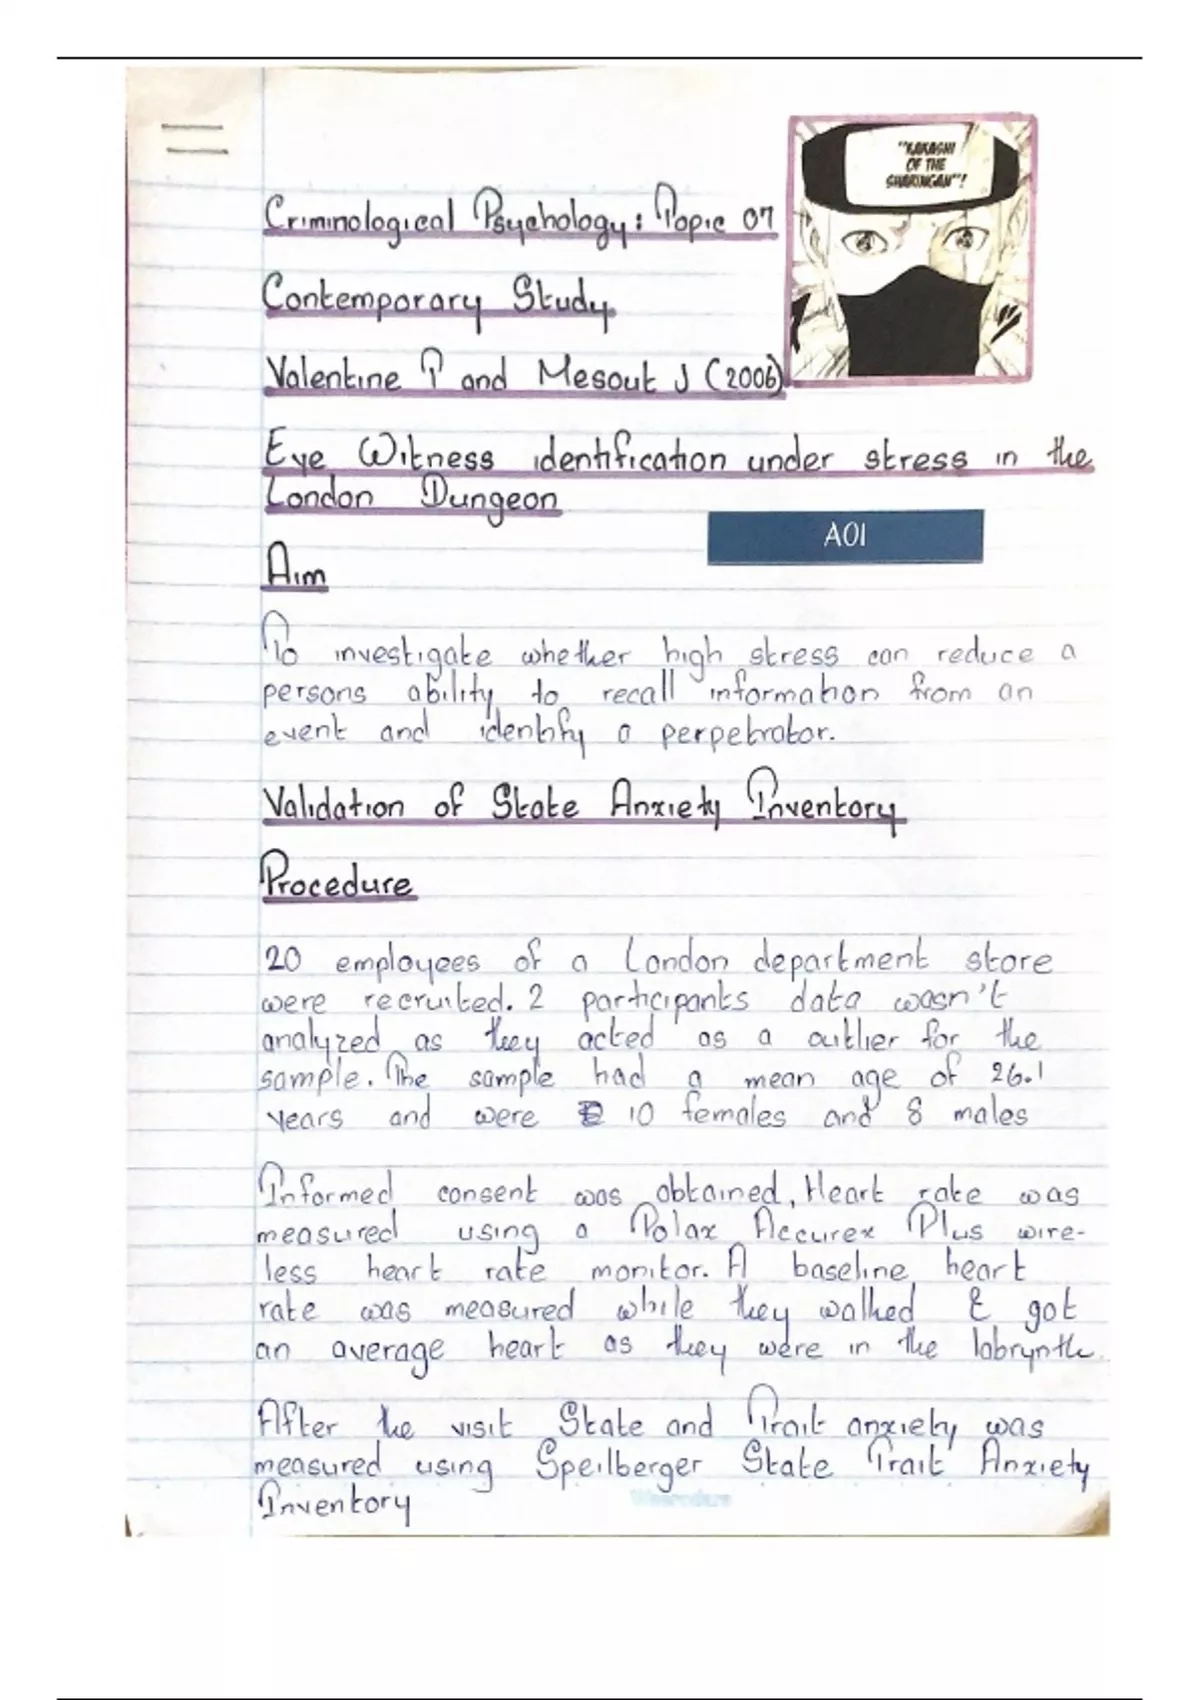 "KAKASHI
OF THE
SHARINGAN"!
Criminological Psychology: Topic 07
Contemporary Study
Valentine T and Mesout J (2006)
Eye Witness identification under stress in the
London Dungeon
AO1
Aim
To investigate whether high stress can reduce a
persons ability to recall information from an
event and identify a perpetrator.
Validation of State Anxiety Inventory
Procedure
20 employees of a London department store
were recruited. 2 participants data wasn't
analyzed as they acted as a outlier for the
sample. The sample had a mean age of 26.1
years and were 10 females and 8 males
Informed consent was obtained, Heart rate was
measured using a Polax Accurex Plus wire-
less heart rate monitor. A baseline heart
rate was measured while they walked & got
an average heart as they were in the labrynth.
After the visit State and Trait anxiety was
measured using Speilberger State Trait Anxiety
Inventory